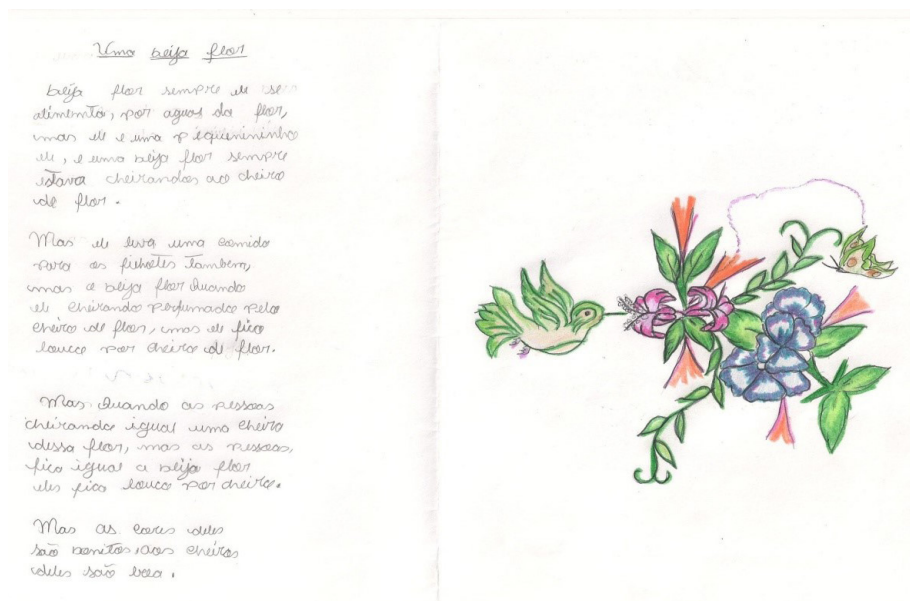 Uma beija flor
beija flor sempre ele se
alimenta, por aguas da flor,
mas ele e uma pequenininho
ele, e uma beija flor sempre
estava cheirandos aos cheiro
de flor.
Mas ele leva uma comida
para os filhotes também,
mas a beija flor Quando
ele cheirando perfumados pelo
cheiro de flor, mas ele fica
louco por cheiro de flor.
Mas Quando as pessoas
cheirando igual uma cheiro
dessa flor, mas as pessoas,
fica igual a beija flor
eles fica louco por cheiro.
Mas as cores deles
são bonitos, aos cheiros
deles são boa.